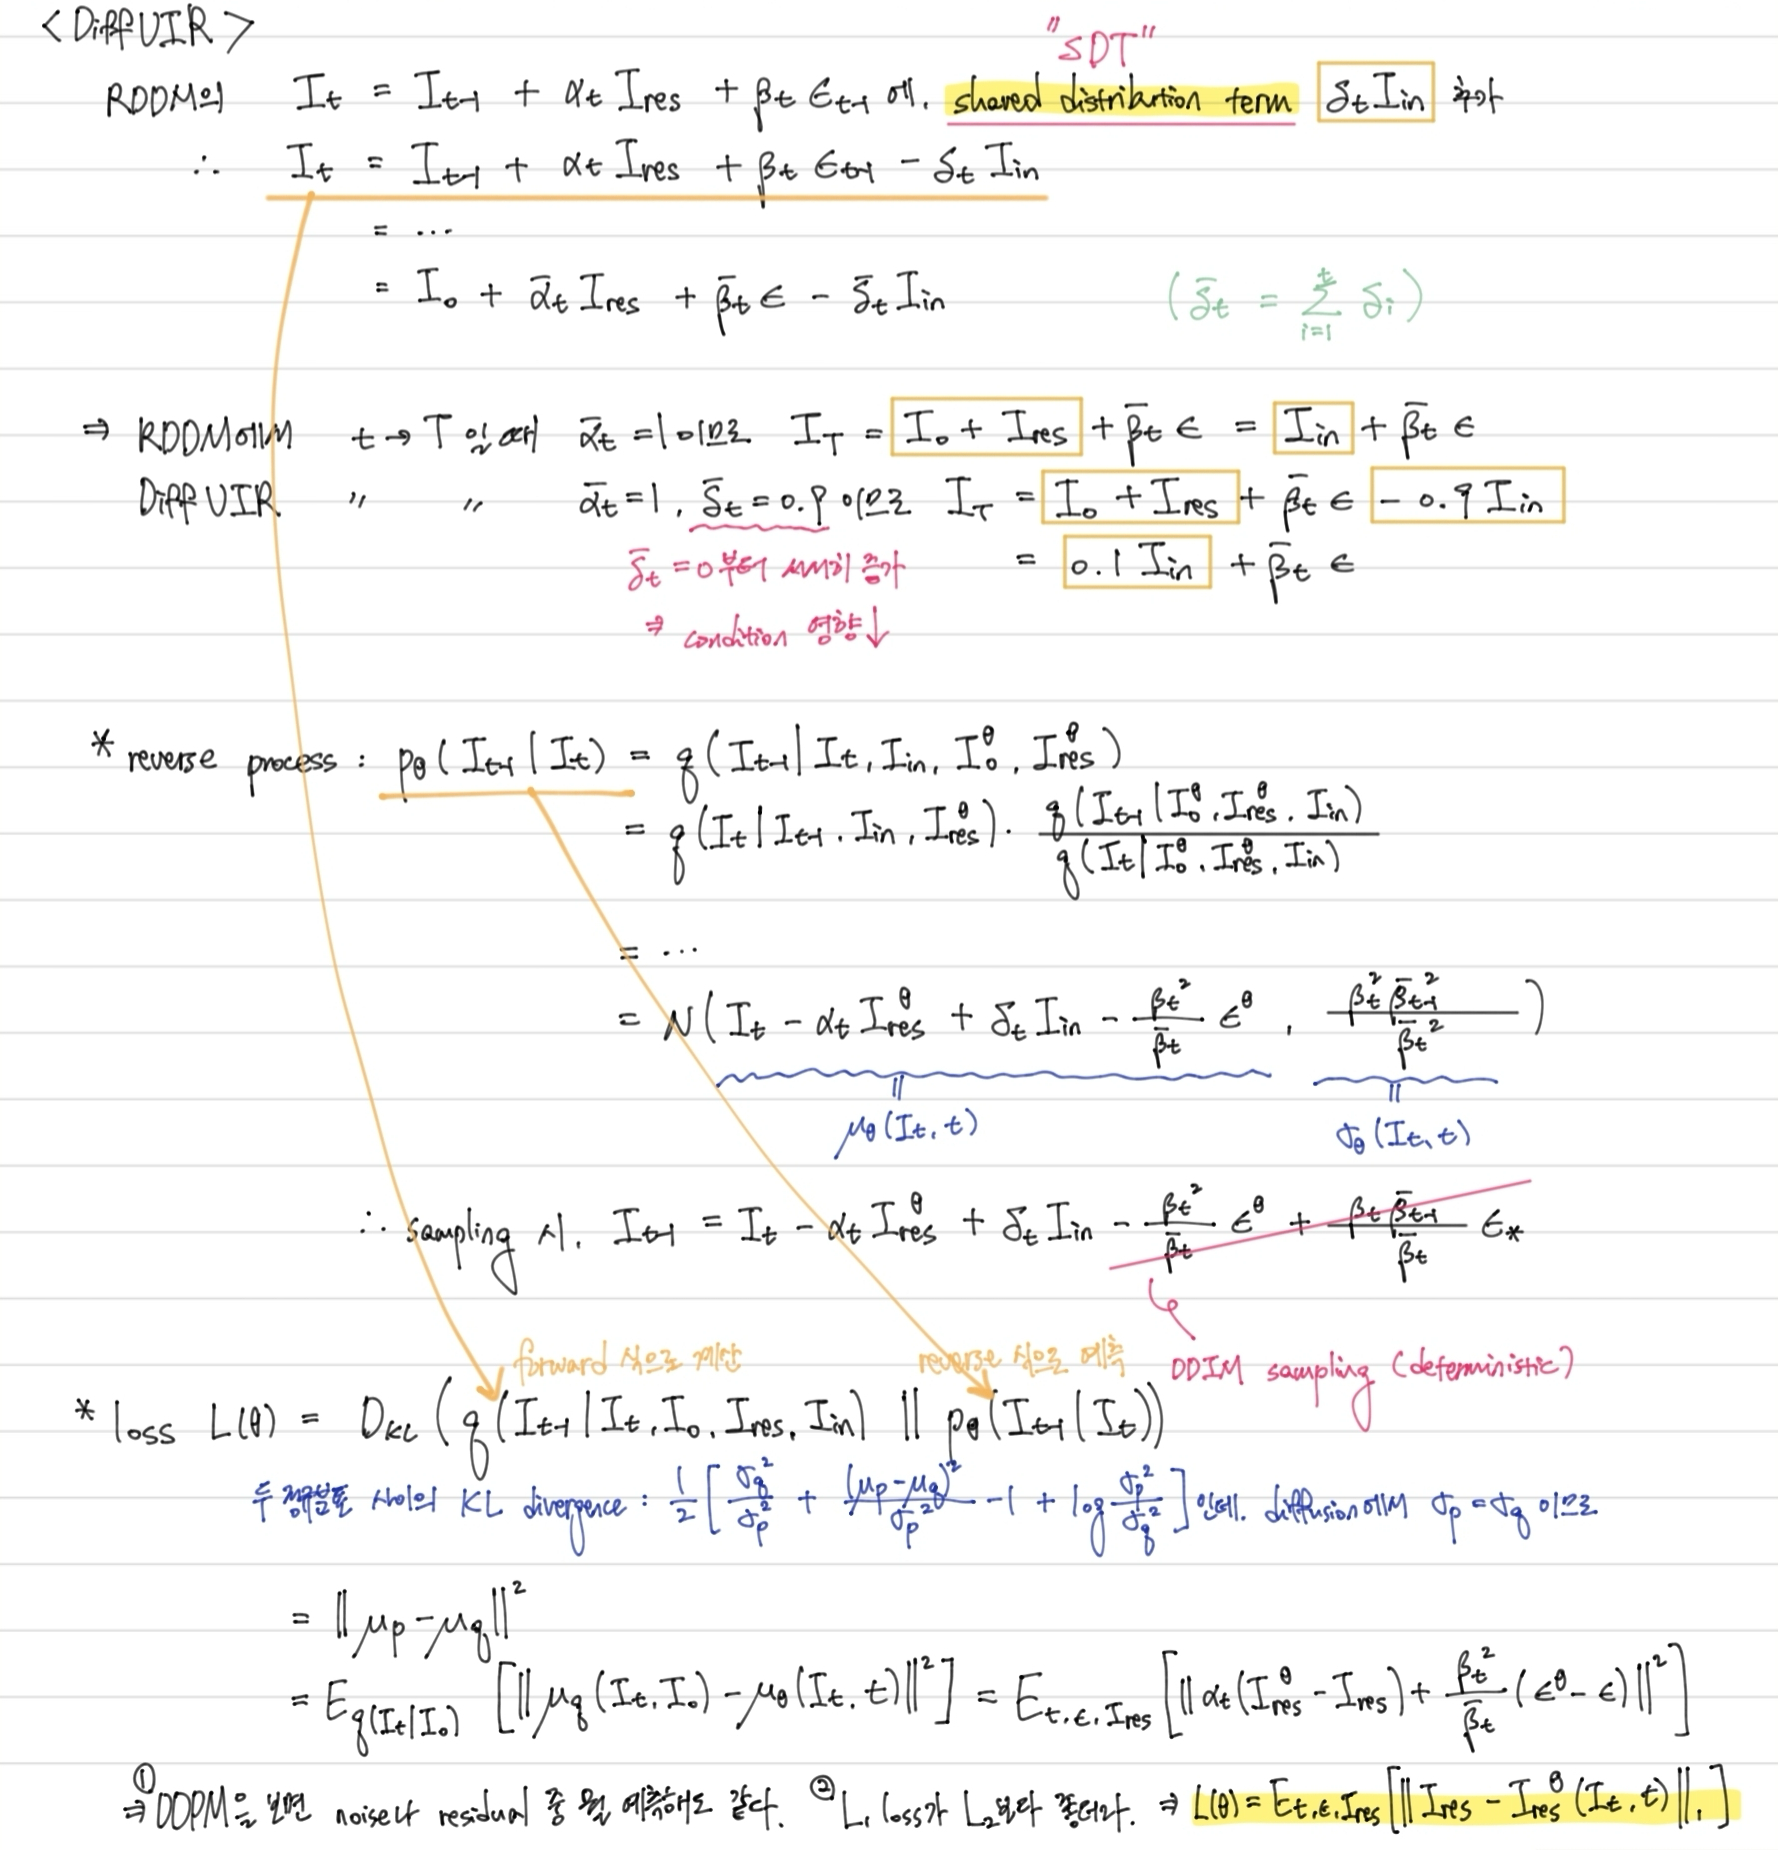 <DiffUIR>
"SDT"
RDDM의 I_t = I_{t-1} + α_t I_res + β_t ϵ_{t-1} 에, shared distribution term δ_t I_in 추가
∴ I_t = I_{t-1} + α_t I_res + β_t ϵ_{t-1} - δ_t I_in
= ...
= I_0 + ᾱ_t I_res + β̄_t ϵ - δ̄_t I_in (δ̄_t = Σ_{i=1}^{t} δ_i)
⇒ RDDM에서 t → T 일 때 ᾱ_t = 1 이므로 I_T = I_0 + I_res + β̄_t ϵ = I_in + β̄_t ϵ
DiffUIR 〃 〃 ᾱ_t = 1, δ̄_t = 0.9 이므로 I_T = I_0 + I_res + β̄_t ϵ - 0.9 I_in
δ̄_t = 0부터 서서히 증가 = 0.1 I_in + β̄_t ϵ
⇒ condition 영향↓
* reverse process : p_θ(I_{t-1} | I_t) = q(I_{t-1} | I_t, I_in, I_0^θ, I_res^θ)
= q(I_t | I_{t-1}, I_in, I_res^θ) · q(I_{t-1} | I_0^θ, I_res^θ, I_in) / q(I_t | I_0^θ, I_res^θ, I_in)
= ...
= N(I_t - α_t I_res^θ + δ_t I_in - β_t²/β̄_t ϵ^θ, β_t² β̄_{t-1}²/β̄_t²)
μ_θ(I_t, t) σ_θ(I_t, t)
∴ sampling 시, I_{t-1} = I_t - α_t I_res^θ + δ_t I_in - β_t²/β̄_t ϵ^θ + β_t β̄_{t-1}/β̄_t ϵ_*
forward 식으로 계산 reverse 식으로 예측 DDIM sampling (deterministic)
* loss L(θ) = D_KL(q(I_{t-1} | I_t, I_0, I_res, I_in) || p_θ(I_{t-1} | I_t))
두 정규분포 사이의 KL divergence : 1/2 [σ_q²/σ_p² + (μ_p - μ_q)²/σ_p² - 1 + log σ_p²/σ_q²] 인데, diffusion에서 σ_p = σ_q 이므로
= ||μ_p - μ_q||²
= E_{q(I_t|I_0)} [||μ_q(I_t, I_0) - μ_θ(I_t, t)||²] = E_{t,ϵ,I_res} [||α_t(I_res^θ - I_res) + β_t²/β̄_t (ϵ^θ - ϵ)||²]
⇒ ① DDPM을 보면 noise나 residual 중 뭘 예측해도 같다. ② L_1 loss가 L_2보다 좋더라. ⇒ L(θ) = E_{t,ϵ,I_res} [||I_res - I_res^θ(I_t, t)||_1]